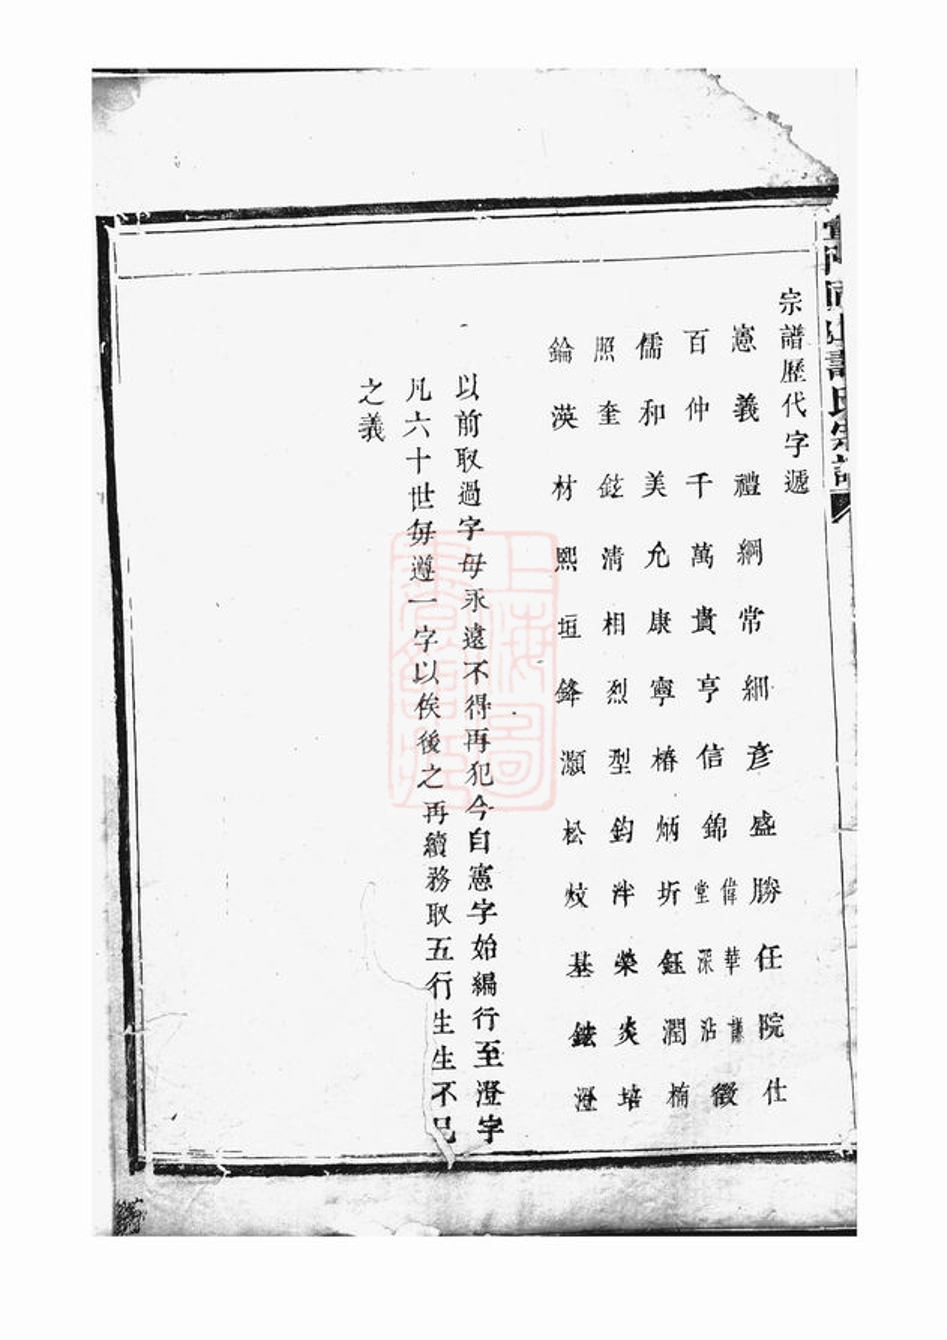 宗譜歷代字遞
憲義禮綱常細彥盛勝任院仕
百仲千萬貴亨信錦偉堂華深謙沾徵
儒和美允康寧椿炳圻鈺潤楠
照奎鉉清相烈型鈞泮榮炎培
錀渶材熙垣鋒灝松炆基鉣澄
以前取過字毋永遠不得再犯今自憲字始編行至澄字
凡六十世每遵一字以俟後之再續務取五行生生不已
之義
氏宗譜
上海圖